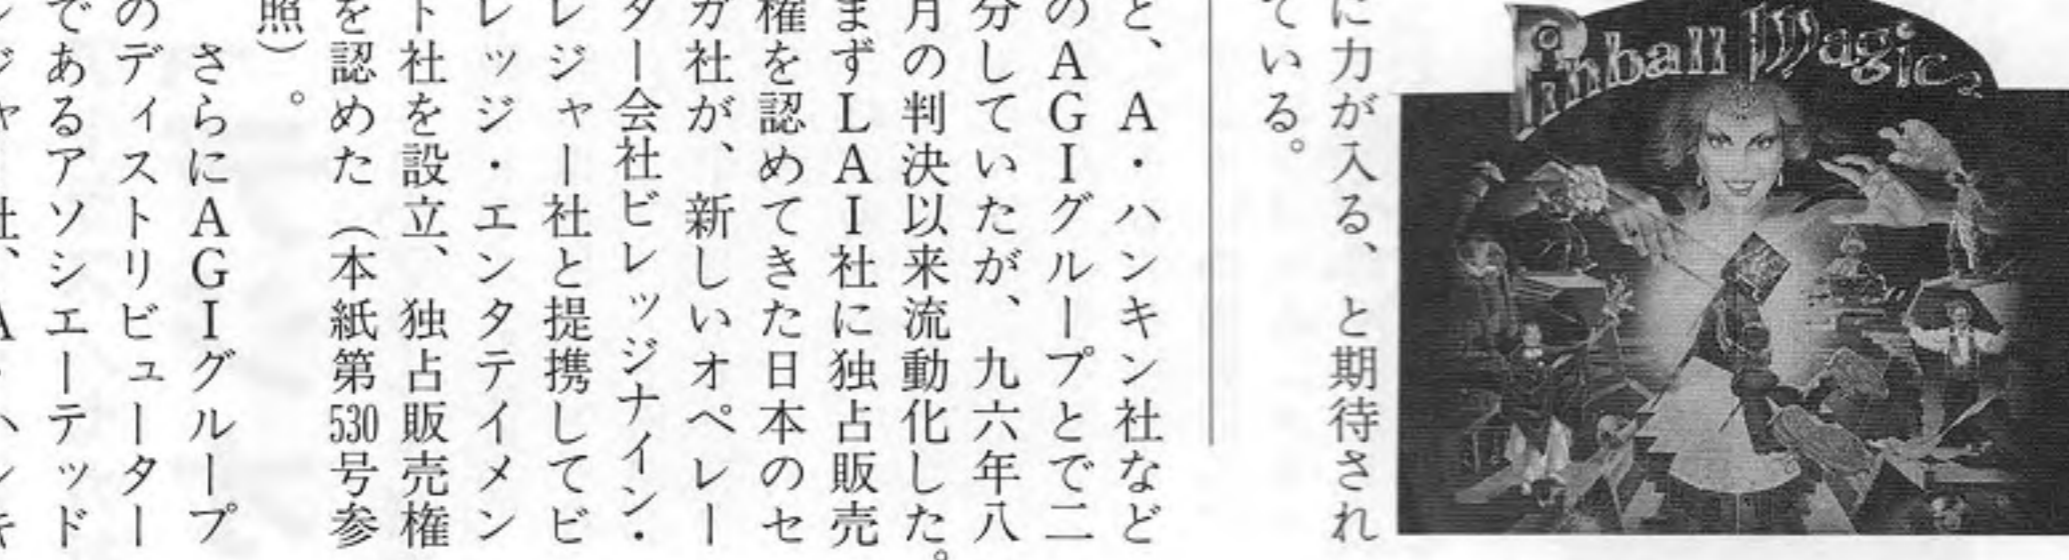 Pinball Magic
に力が入る、と期待され
ている。
と、A・ハンキン社など
のAGIグループとで二
分していたが、九六年八
月の判決以来流動化した。
まずLAI社に独占販売
権を認めてきた日本のセ
ガ社が、新しいオペレー
ター会社ビレッジナイン・
レジャー社と提携してビ
レッジ・エンタテイメン
ト社を設立、独占販売権
を認めた（本紙第530号参
照）。
さらにAGIグループ
のディストリビューター
であるアソシエーテッド